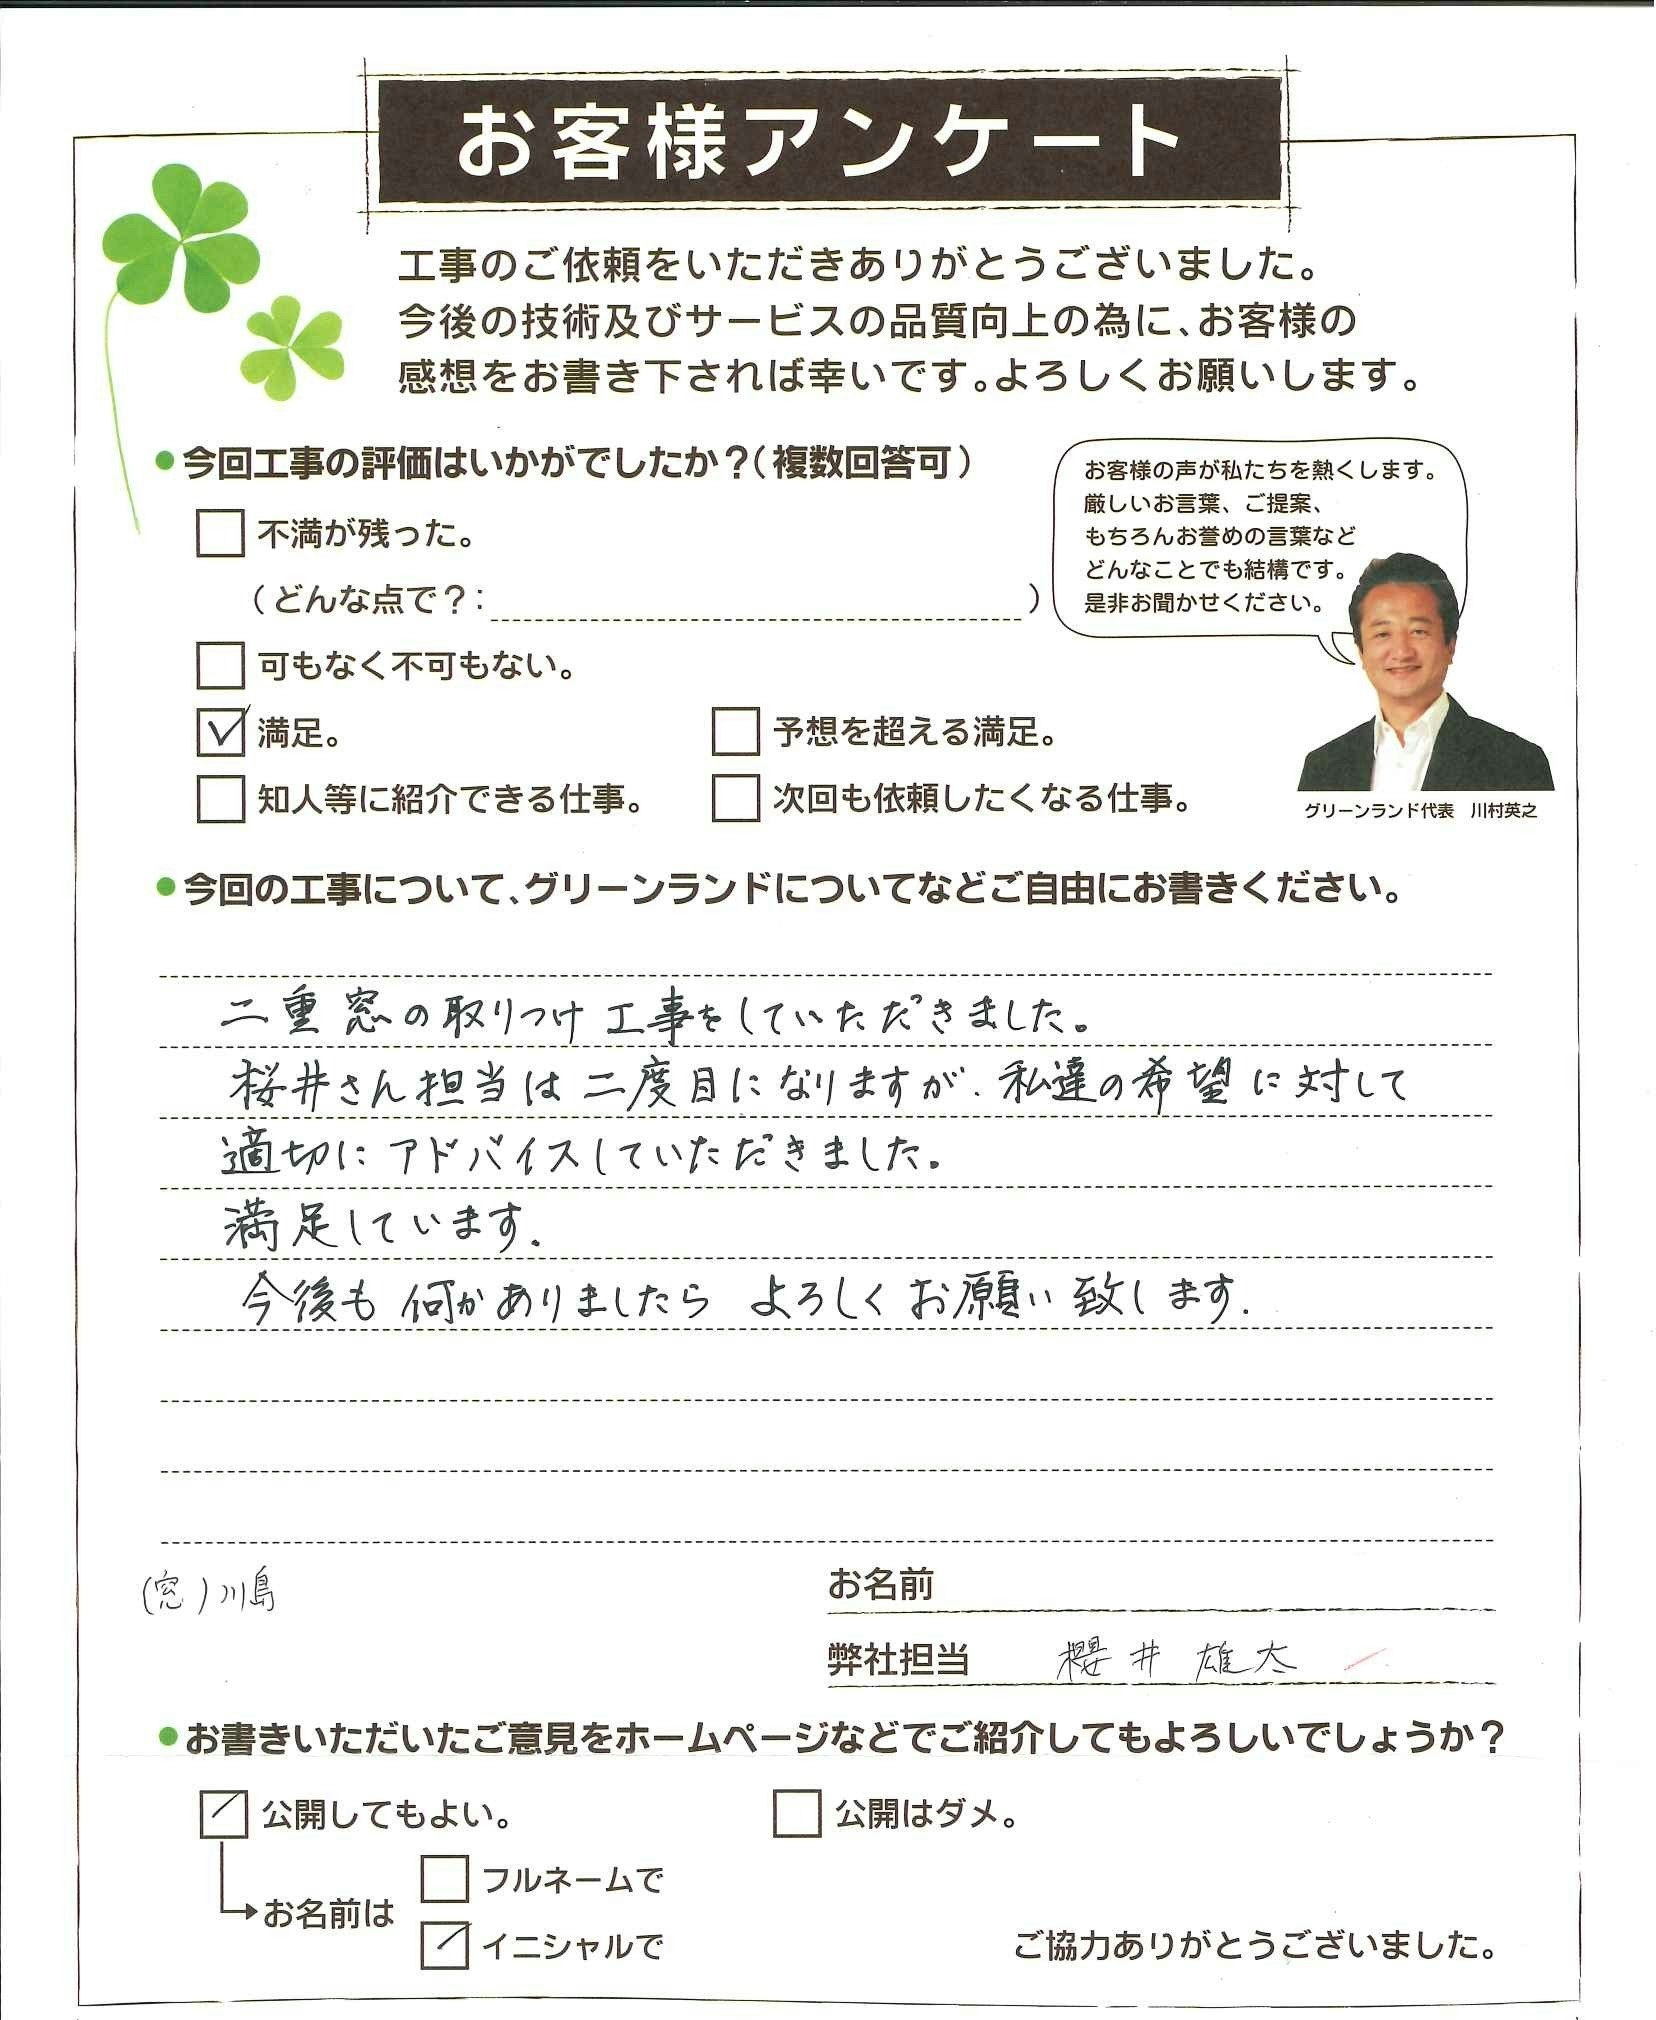 お客様アンケート
工事のご依頼をいただきありがとうございました。
今後の技術及びサービスの品質向上の為に、お客様の
感想をお書き下されば幸いです。よろしくお願いします。
●今回工事の評価はいかがでしたか？（複数回答可）
不満が残った。
（どんな点で？：　）
可もなく不可もない。
満足。
予想を超える満足。
知人等に紹介できる仕事。
次回も依頼したくなる仕事。
お客様の声が私たちを熱くします。
厳しいお言葉、ご提案、
もちろんお誉めの言葉など
どんなことでも結構です。
是非お聞かせください。
グリーンランド代表　川村英之
●今回の工事について、グリーンランドについてなどご自由にお書きください。
二重窓の取りつけ工事をしていただきました。
桜井さん担当は二度目になりますが、私達の希望に対して
適切にアドバイスしていただきました。
満足しています。
今後も何かありましたらよろしくお願い致します。
(窓)川島
お名前
弊社担当　櫻井 雄太
●お書きいただいたご意見をホームページなどでご紹介してもよろしいでしょうか？
公開してもよい。
公開はダメ。
お名前は
フルネームで
イニシャルで
ご協力ありがとうございました。